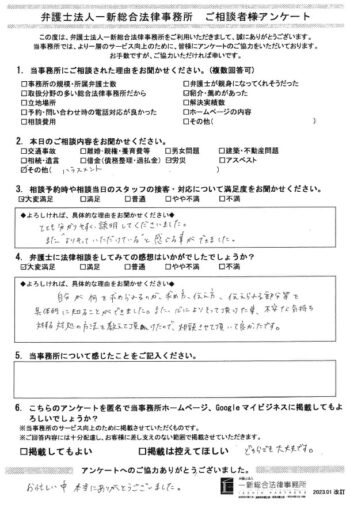 弁護士法人一新総合法律事務所　ご相談者様アンケート
この度は、弁護士法人一新総合法律事務所をご利用いただきまして、誠にありがとうございます。
当事務所では、より一層のサービス向上のために、皆様にアンケートのご協力をいただいております。
お手数ですが、ご協力いただければ幸いです。
1. 当事務所にご相談された理由をお聞かせください。（複数回答可）
□事務所の規模・所属弁護士数　□弁護士が親身になってくれそうだった
□取扱分野の多い総合事務所だから　□紹介・薦めがあった
□立地場所　□解決実績数
□予約・問い合わせ時の電話対応が良かった　□ホームページの内容
□相談費用　□その他(　)
2. 本日のご相談内容をお聞かせください。
□交通事故　□離婚・親権・養育費等　□男女問題　□建築・不動産問題
□相続・遺言　□借金（債務整理・過払金）　☑労災　□アスベスト
☑その他(　ハラスメント　)
3. 相談予約時や相談当日のスタッフの接客・対応について満足度をお聞かせください。
☑大変満足　□満足　□普通　□やや不満　□不満
◆よろしければ、具体的な理由をお聞かせください◆
とても分かりやすく、説明してくださいました。
また"よりそっていただけている"と感じる事ができました。
4. 弁護士に法律相談をしてみての感想はいかがでしたでしょうか？
☑大変満足　□満足　□普通　□やや不満　□不満
◆よろしければ、具体的な理由をお聞かせください◆
自分が何を求められるのか、求め方、伝え方、伝えられる部分等を
具体的に知ることができました。また、心によりそって頂けた事、不安な気持ち
対する対処の方法も教えて頂けたので、相談させて頂いて良かったです。
5. 当事務所について感じたことをご記入ください。
6. こちらのアンケートを匿名で当事務所ホームページ、Googleマイビジネスに掲載してもよろしいでしょうか？
※当事務所のサービス向上のために掲載させていただくものです。
※ご回答内容には十分配慮し、お客様に差し支えのない範囲で掲載させていただきます。
□掲載してもよい　□掲載は控えてほしい　どちらでも大丈夫です。
アンケートへのご協力ありがとうございました。
お忙しい中 本当にありがとうございました。
弁護士法人
一新総合法律事務所
2023.01 改訂